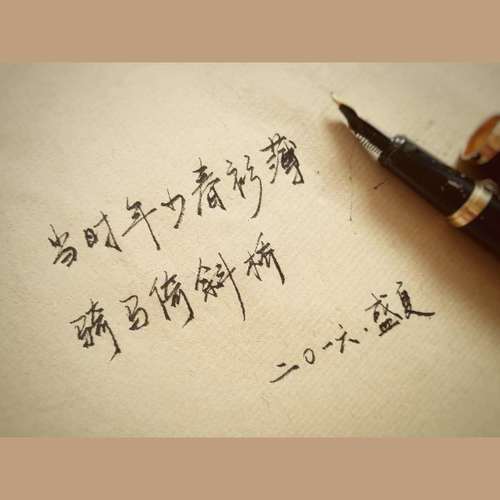 当时年少春衫薄
骑马倚斜桥
二〇一六.盛夏